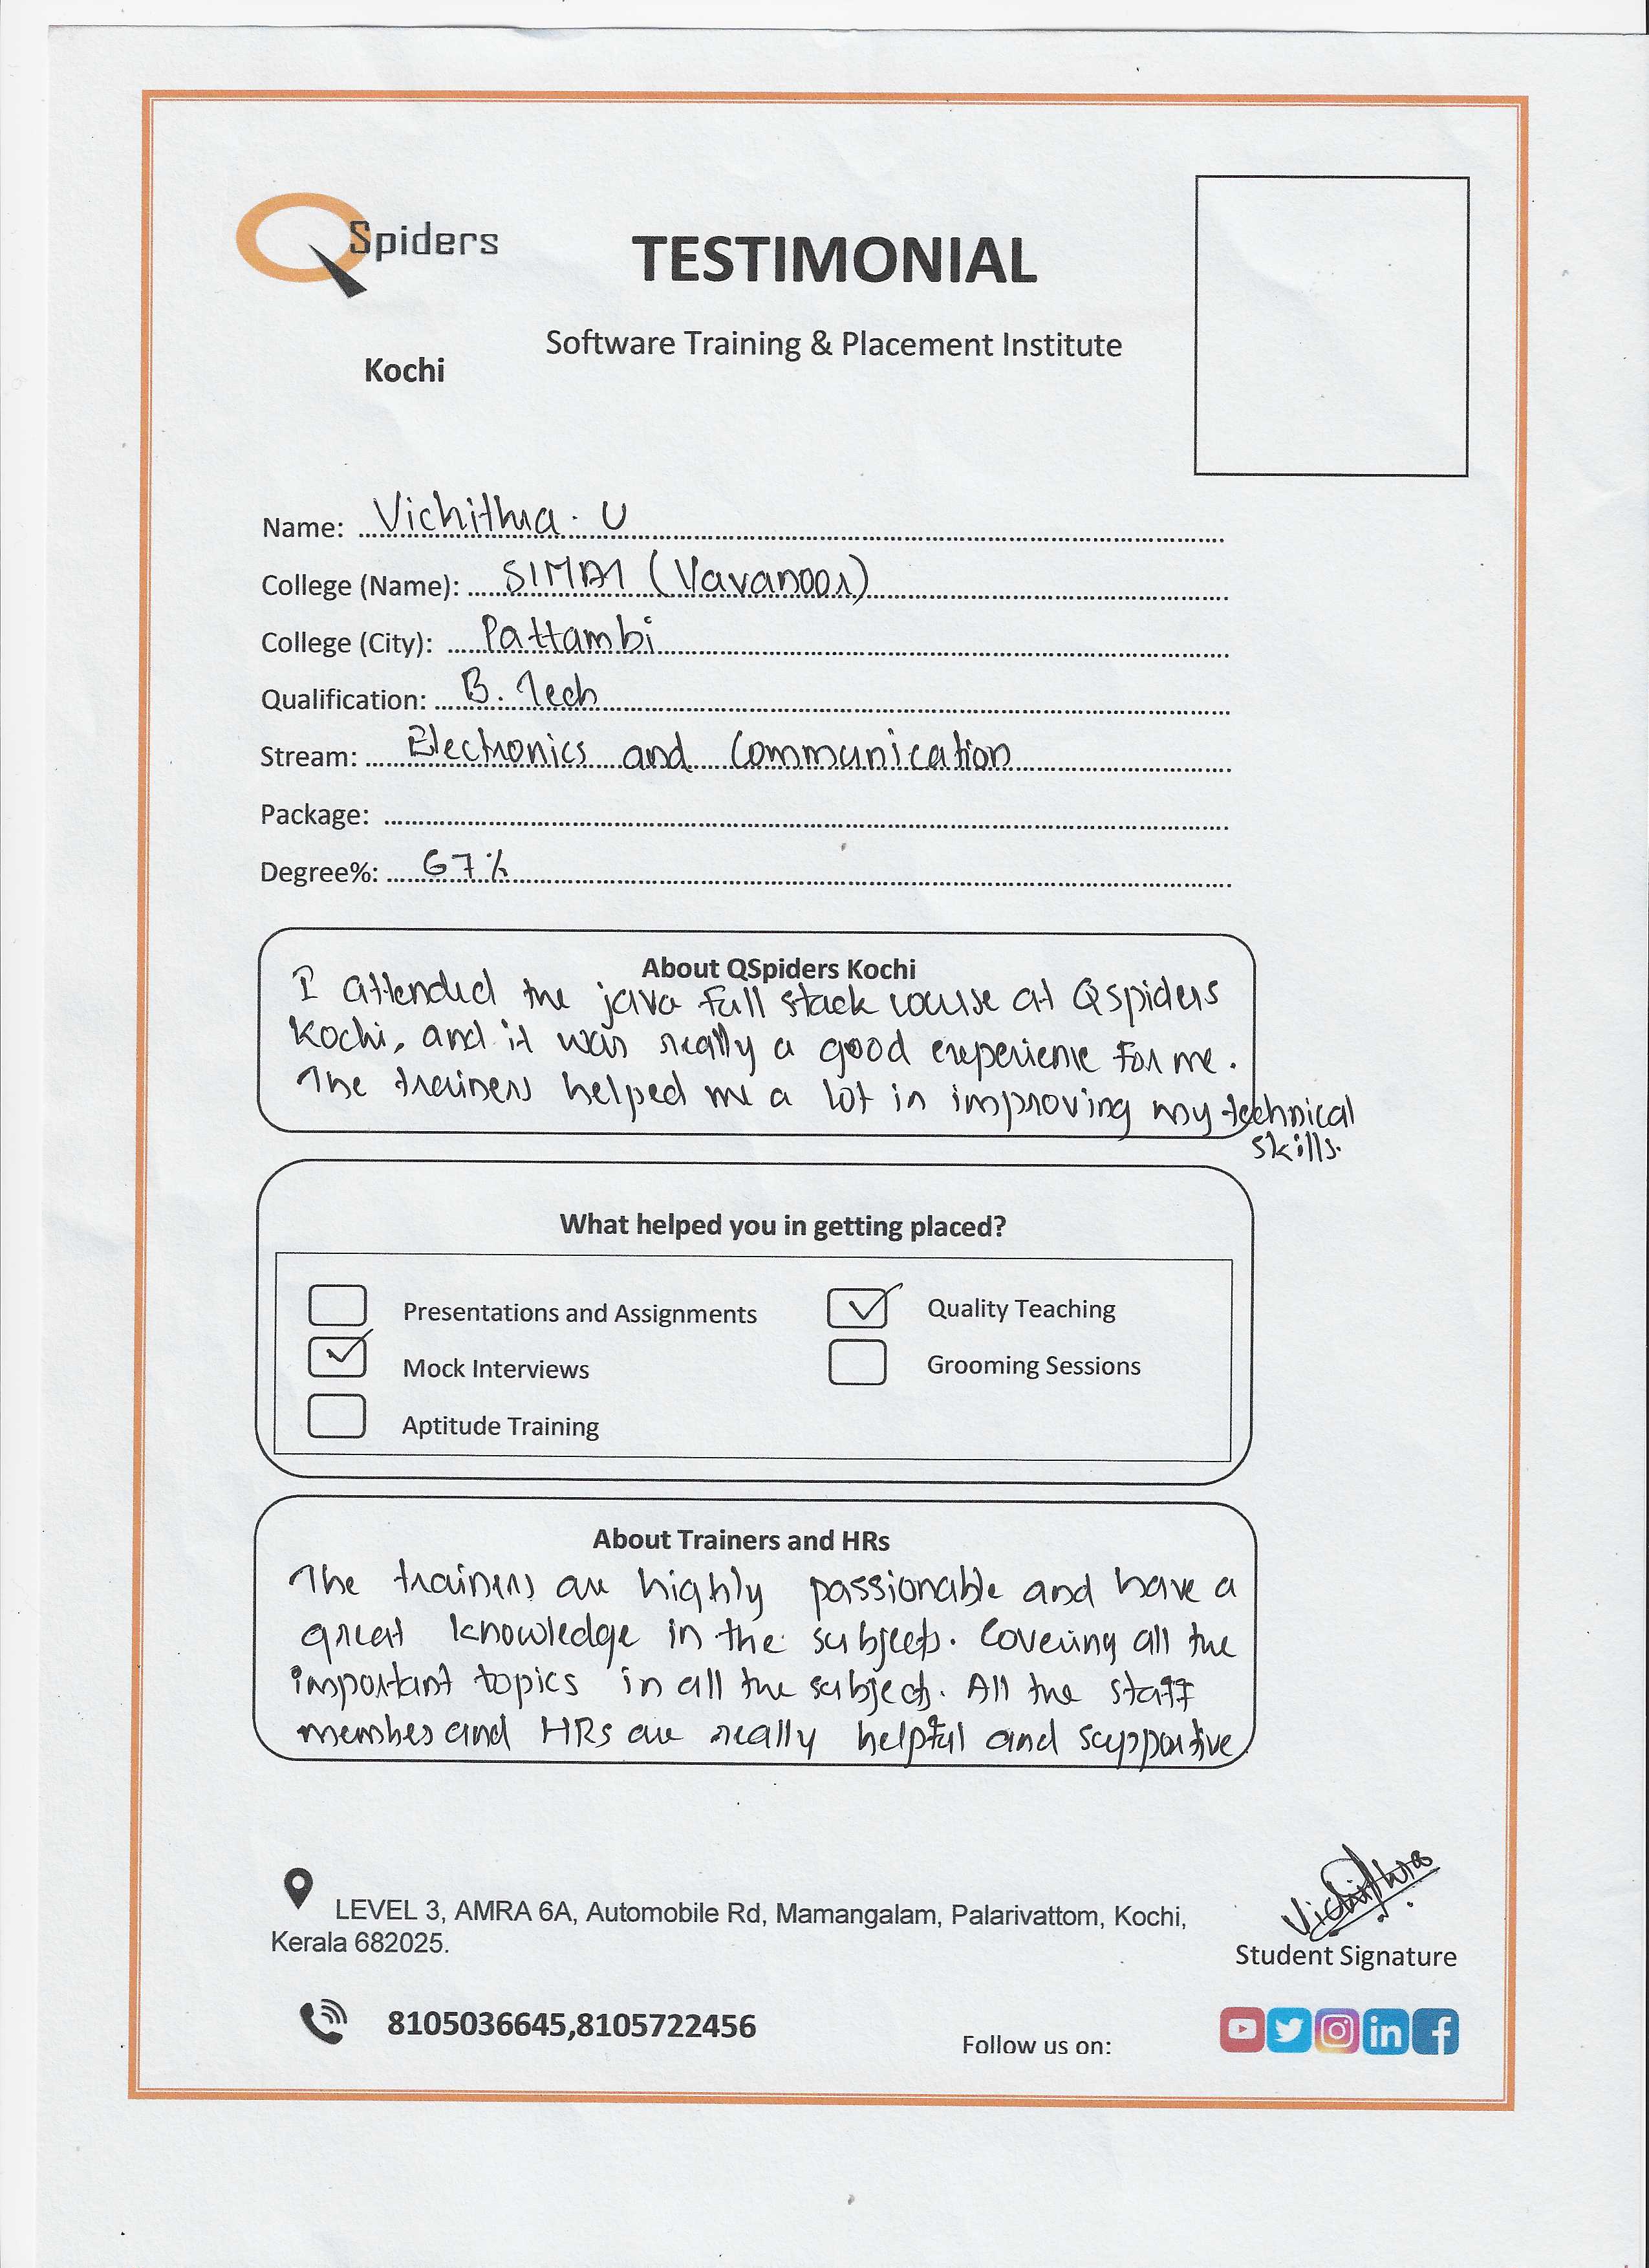 QSpiders
Kochi
TESTIMONIAL
Software Training & Placement Institute
Name: Vichithra. U
College (Name): (Vavanoor)
College (City): Pattambi
Qualification: B. Tech
Stream: Electronics and Communication
Package:
Degree%: 67%
About QSpiders Kochi
I attended the java full stack course at Qspiders
Kochi, and it was really a good experience for me.
The trainers helped me a lot in improving my technical
skills.
What helped you in getting placed?
Presentations and Assignments
Quality Teaching
Mock Interviews
Grooming Sessions
Aptitude Training
About Trainers and HRs
The trainers are highly passionable and have a
great knowledge in the subjects. Covering all the
important topics in all the subjects. All the staff
membes and HRs are really helpful and supportive
LEVEL 3, AMRA 6A, Automobile Rd, Mamangalam, Palarivattom, Kochi,
Kerala 682025.
Vichithra
Student Signature
8105036645,8105722456
Follow us on: